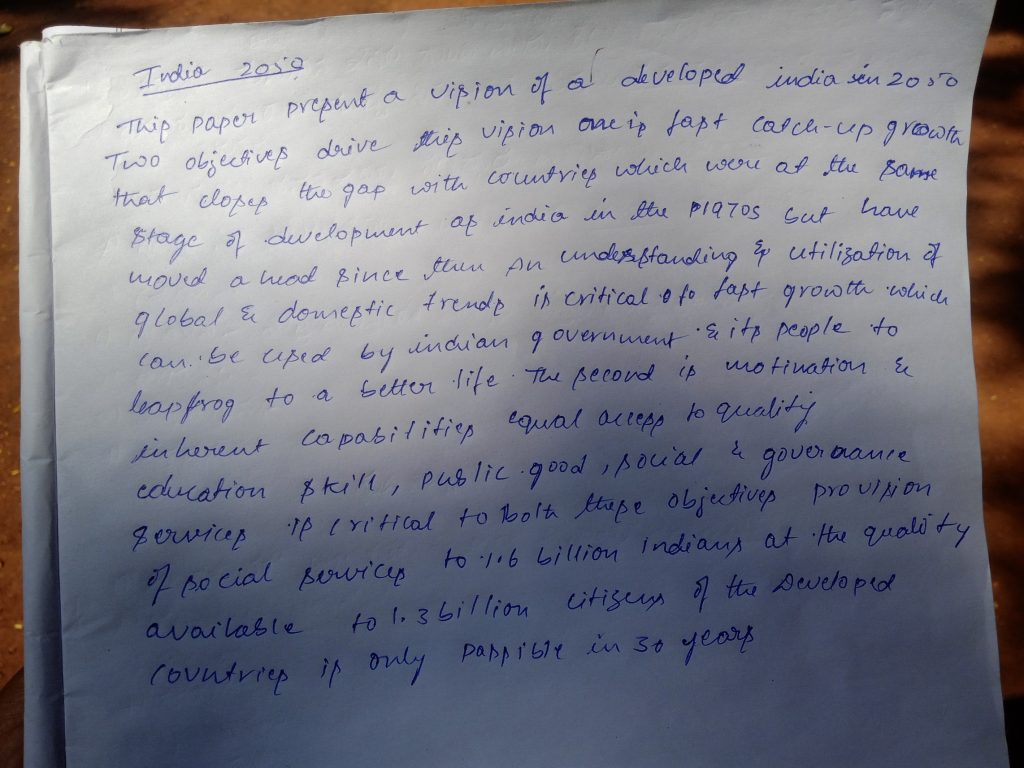 India 2050
This paper present a vision of a developed india in 2050
Two objectives drive this vision one is fast catch-up growth
that closes the gap with countries which were at the same
stage of development as india in the 1970s but have
moved a head since then An understanding & utilization of
global & domestic trends is critical to fast growth which
can be used by indian government & its people to
leapfrog to a better life. The second is motination &
inherent capabilities equal access to quality
education skill, public good, social & goverance
services is critical to both these objectives provision
of social services to 1.6 billion Indians at the quality
available to 1.3 billion citizens of the Developed
countries is only passible in 30 years